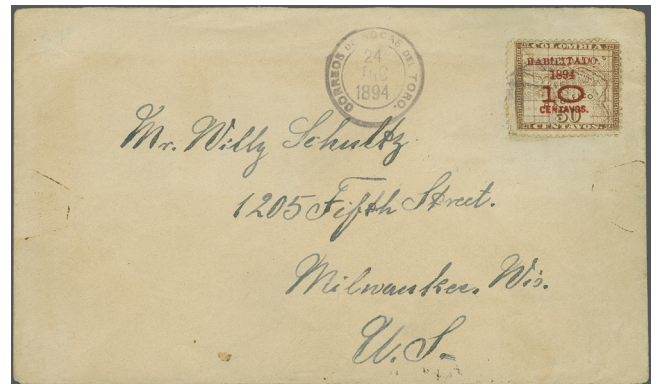 CORREOS DE BOCAS DEL TORO.
24
DIC
1894
COLOMBIA
HABILITADO.
1894
10
CENTAVOS.
50
CENTAVOS.
Mr. Willy Schultz
1205 Fifth Street.
Milwaukee. Wis.
U. S.